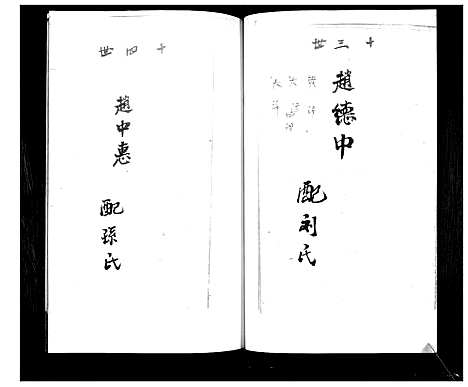 十三世
趙德中
配刘氏
十四世
趙中惠
配孫氏